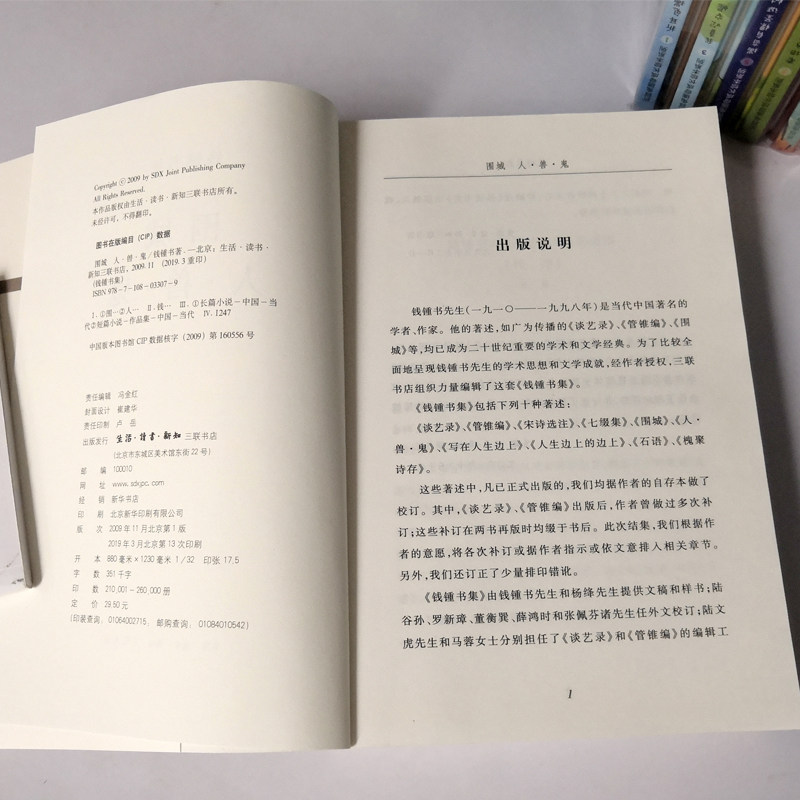 Copyright © 2009 by SDX Joint Publishing Company
All Rights Reserved.
本作品版权由生活·读书·新知三联书店所有。
未经许可，不得翻印。
图书在版编目（CIP）数据
围城 人·兽·鬼/钱锺书著.—北京：生活·读书·
新知三联书店，2009.11（2019.3重印）
（钱锺书集）
ISBN 978-7-108-03307-9
Ⅰ.①围…②人… Ⅱ.钱… Ⅲ.①长篇小说－中国－当
代②短篇小说－作品集－中国－当代 Ⅳ.1247
中国版本图书馆CIP数据核字（2009）第160556号
责任编辑 冯金红
封面设计 崔建华
责任印制 卢岳
出版发行 生活·讀書·新知 三联书店
（北京市东城区美术馆东街22号）
邮 编 100010
网 址 www.sdxjpc.com
经 销 新华书店
印 刷 北京新华印刷有限公司
版 次 2009年11月北京第1版
2019年3月北京第13次印刷
开 本 880毫米×1230毫米 1/32 印张17.5
字 数 351千字
印 数 210,001-260,000册
定 价 29.50元
（印装查询：01064002715；邮购查询：01084010542）
围城 人·兽·鬼
出版说明
钱锺书先生（一九一〇——一九九八年）是当代中国著名的
学者、作家。他的著述，如广为传播的《谈艺录》、《管锥编》、《围
城》等，均已成为二十世纪重要的学术和文学经典。为了比较全
面地呈现钱锺书先生的学术思想和文学成就，经作者授权，三联
书店组织力量编辑了这套《钱锺书集》。
《钱锺书集》包括下列十种著述：
《谈艺录》、《管锥编》、《宋诗选注》、《七缀集》、《围城》、《人·
兽·鬼》、《写在人生边上》、《人生边上的边上》、《石语》、《槐聚
诗存》。
这些著述中，凡已正式出版的，我们均据作者的自存本做了
校订。其中，《谈艺录》、《管锥编》出版后，作者曾做过多次补
订；这些补订在两书再版时均缀于书后。此次结集，我们根据作
者的意愿，将各次补订或据作者指示或依文意排入相关章节。
另外，我们还订正了少量排印错讹。
《钱锺书集》由钱锺书先生和杨绛先生提供文稿和样书；陆
谷孙、罗新璋、董衡巽、薛鸿时和张佩芬诸先生任外文校订；陆文
虎先生和马蓉女士分别担任了《谈艺录》和《管锥编》的编辑工
1